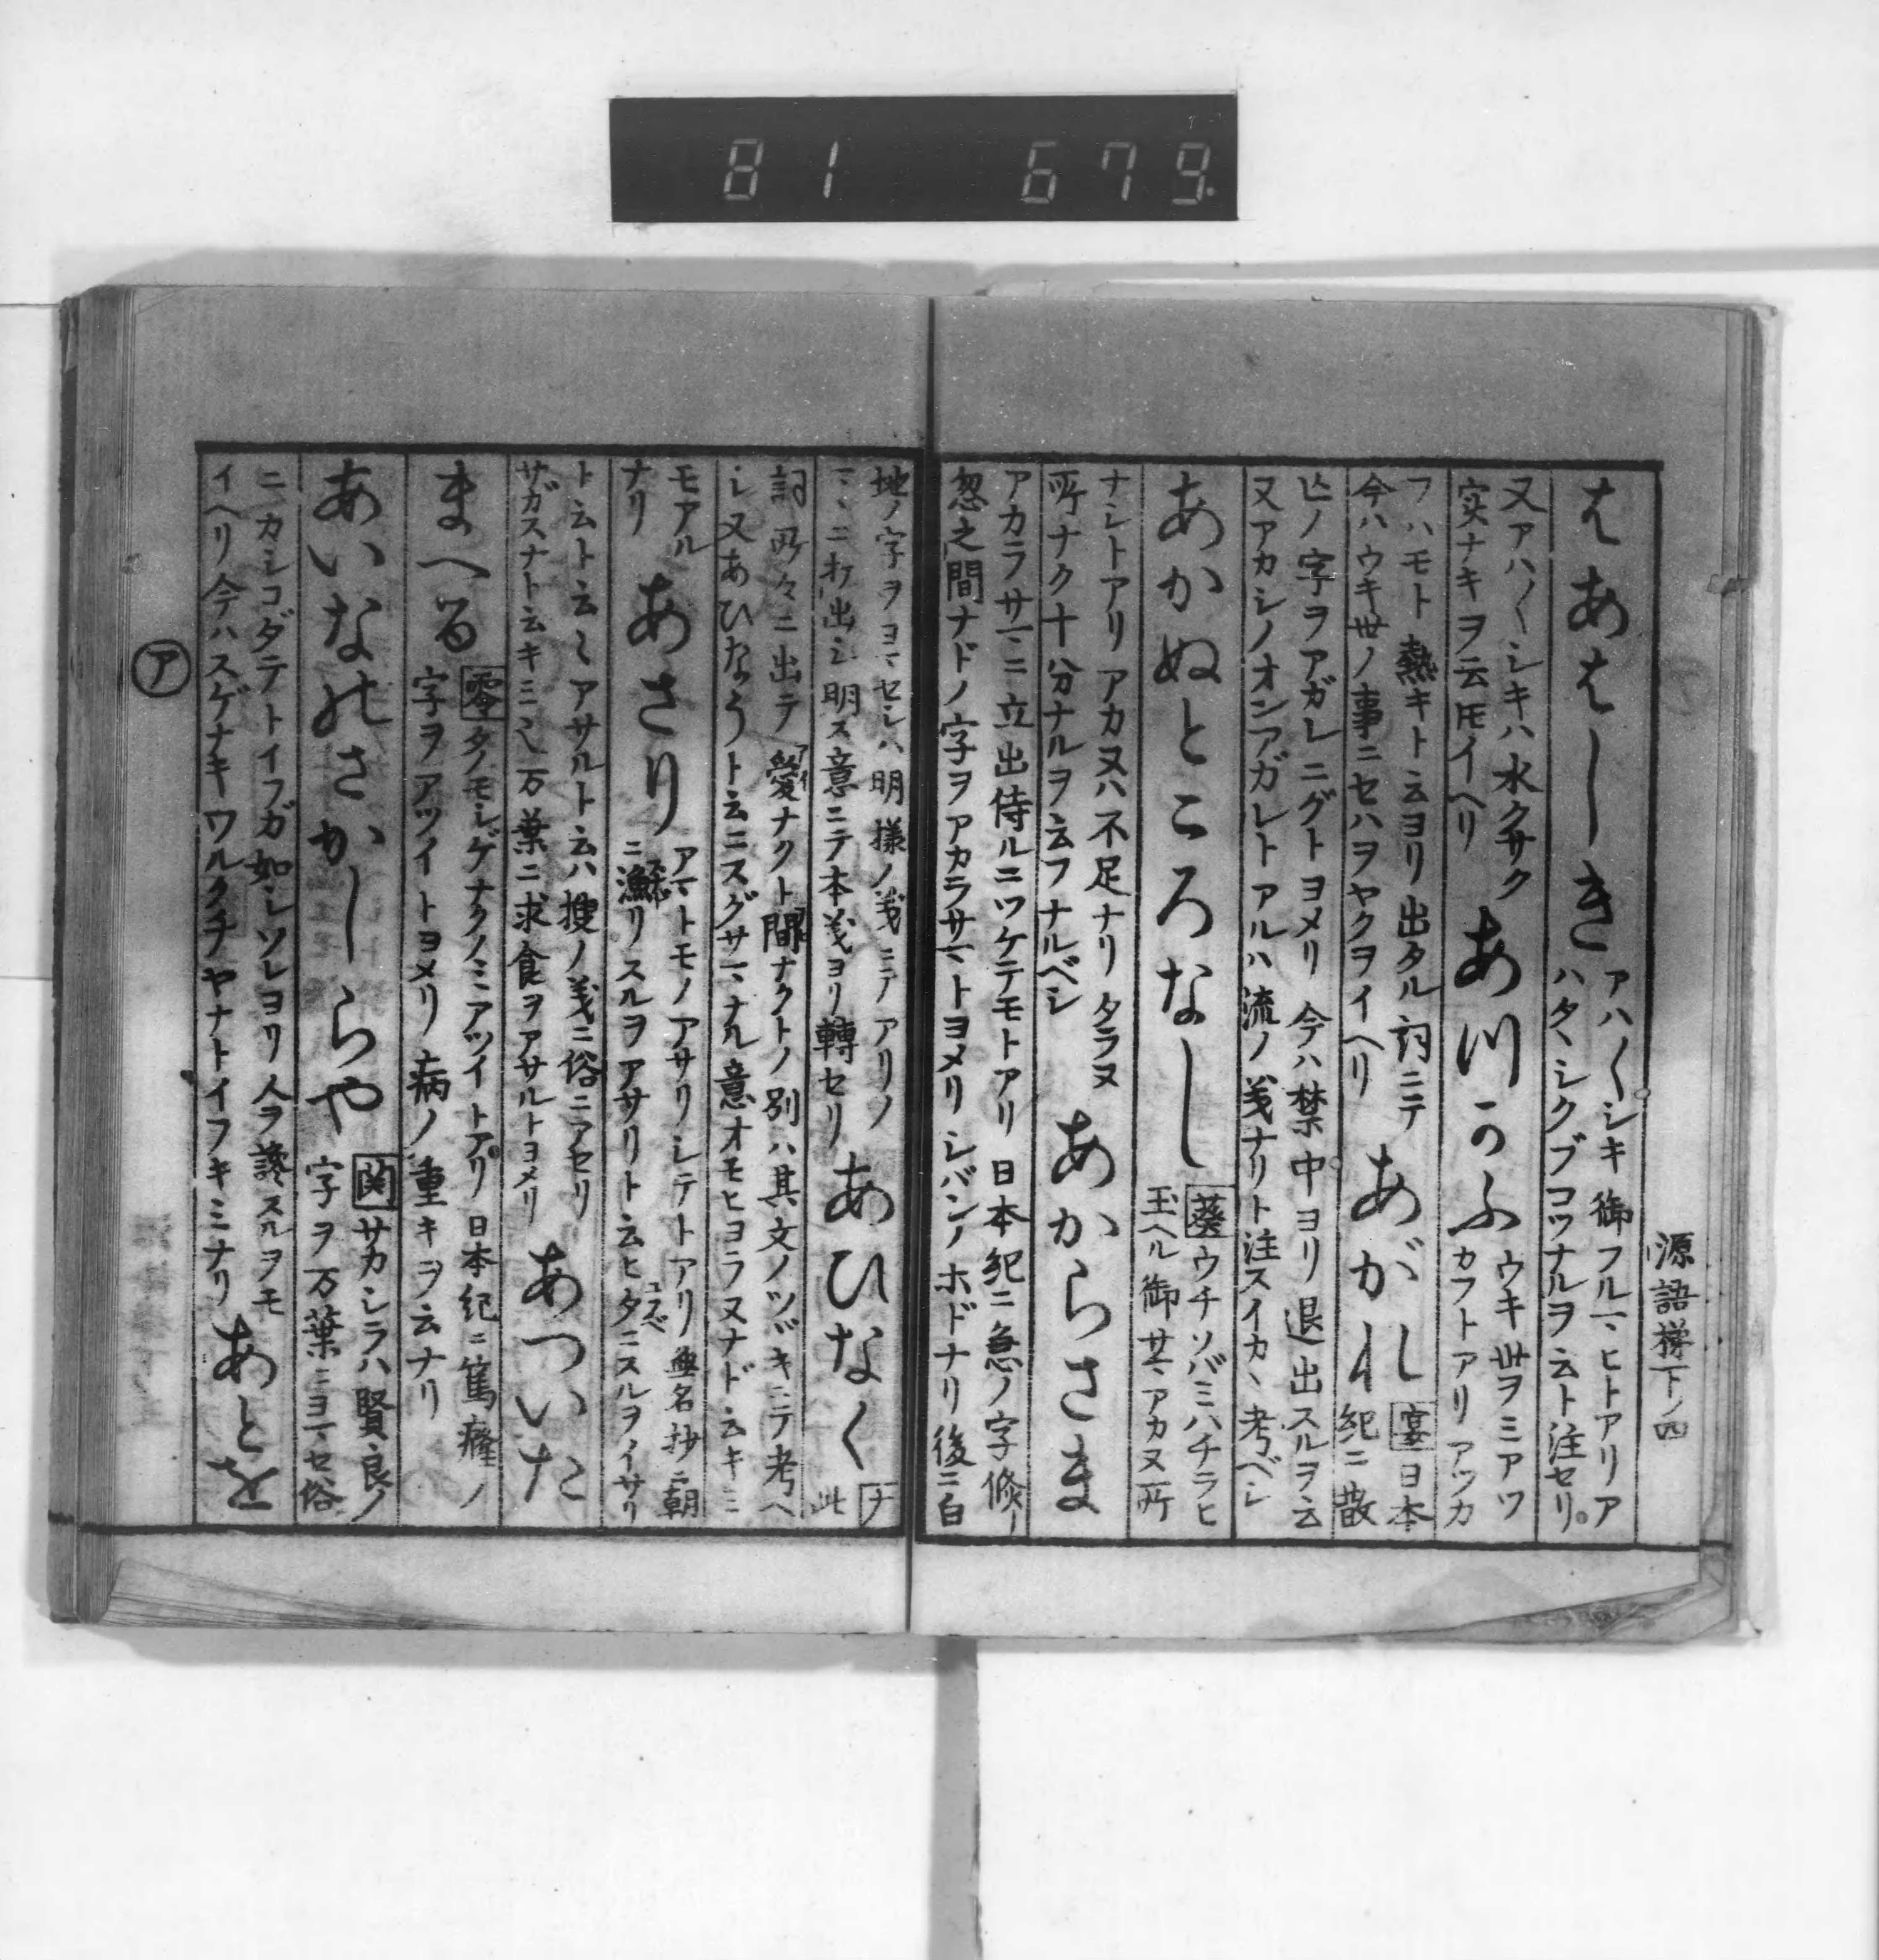 81 679
源語梯下ノ四
はあはしき
アハ〱シキ御フルマヒトアリア
ハタヽシクブコツナルヲ云ト注セリ
又アハ〱シキハ水クサク
実ナキヲ云ﾄﾓイヘリ
あつかふ
ウキ世ヲミアツ
カフトアリアツカ
フハモト熱キト云ヨリ出タル詞ニテ
今ハウキ世ノ事ニセハヲヤクヲイヘリ
あがれ
宴日本
紀ニ散
亡ノ字ヲアガレニグトヨメリ今ハ禁中ヨリ退出スルヲ云
又アカシノオンアガレトアルハ流ノ義ナリト注スイカヽ考ベシ
あかぬところなし
葵ウチソバミハチラヒ
玉ヘル御サマアカヌ所
ナシトアリアカヌハ不足ナリタラヌ
所ナク十分ナルヲ云フナルベシ
あからさま
アカラサマニ立出侍ルニツケテモトアリ日本紀ニ急ノ字倏
忽之間ナドノ字ヲアカラサマトヨメリシバシノホドナリ後ニ白
地ノ字ヲヨマセシハ明様ノ義ニテアリノ
マヽニ打出シ明ス意ニテ本義ヨリ轉セリ
あひなく
ナ
此
詞所々ニ出テ愛ナクト間ナクトノ別ハ其文ノツヾキニテ考ヘ
シ又あひなうト云ニスグサマナル意オモヒヨラヌナド云キミ
モアル
ナリ
あさり
アマトモノアサリシテトアリ和名抄ニ朝
ニ漁リスルヲアサリト云ヒタニスルヲイサリ
ト云ト云々アサルト云ハ捜ノ義ニ俗ニアセリ
サガスナト云キミ也万葉ニ求食ヲアサルトヨメリ
あついた
まへる
零タノモシゲナクノミアツイトアリ日本紀ニ篤癃ノ
字ヲアツイトヨメリ病ノ重キヲ云ナリ
あいなのさかしらや
関サカシラハ賢良ノ
字ヲ万葉ニヨマセ俗
ニカシコダテトイフガ如シソレヨリ人ヲ讒スルヲモ
イヘリ今ハスゲナキワルクチヤナトイフキミナリ
あとを
ア